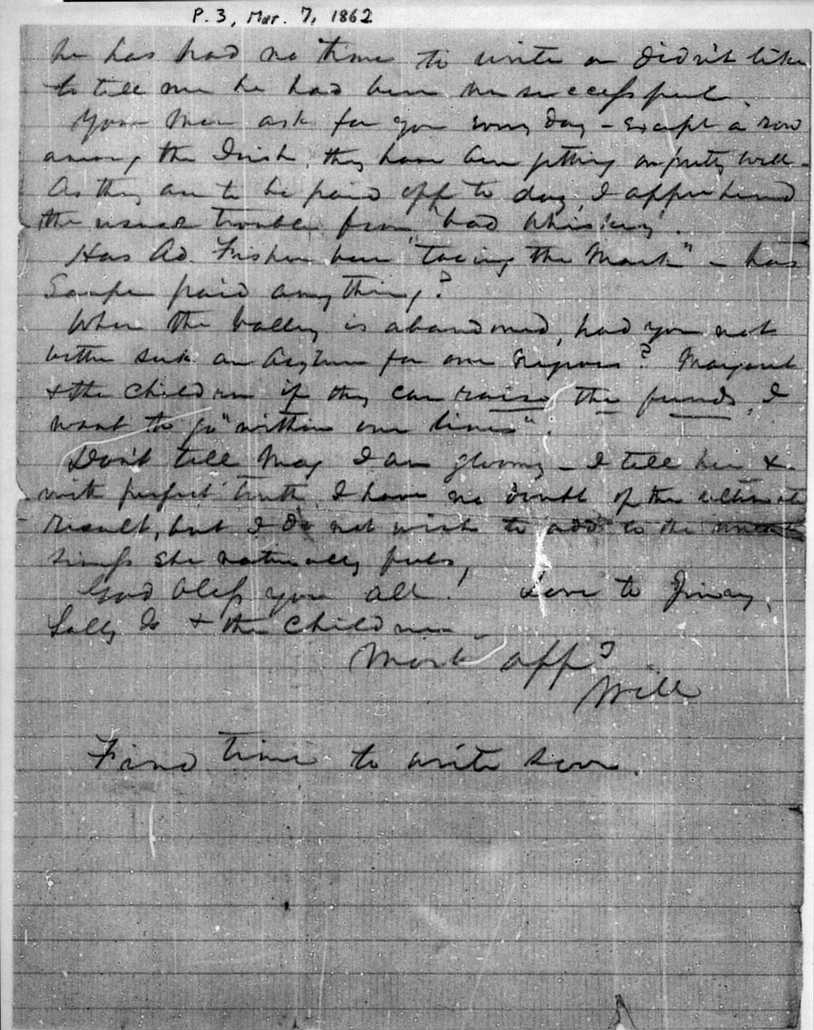 P.3, Mar. 7, 1862
he has had no time to write or didn't like
to tell me he had been unsuccessful.
Your men ask for you every day - Except a row
among the Irish, they have been getting on pretty well -
As they are to be paid off to day, I apprehend
the usual trouble from "bad whiskey".
Has Ad. Fisher been "toeing the Mark" - has
paid anything?
When the Valley is abandoned, had you not
better seek an Asylum for our negroes? Margaret
& the Children if they can raise the funds, I
want to go "within our lines".
Don't tell May I am gloomy - I tell her &
with perfect truth, I have no doubt of the ultimate
result, but I do not wish to add to the
she naturally feels,
God bless you all! Love to Jinny,
Sally & the Children
Most aff
Will
Find time to write soon.